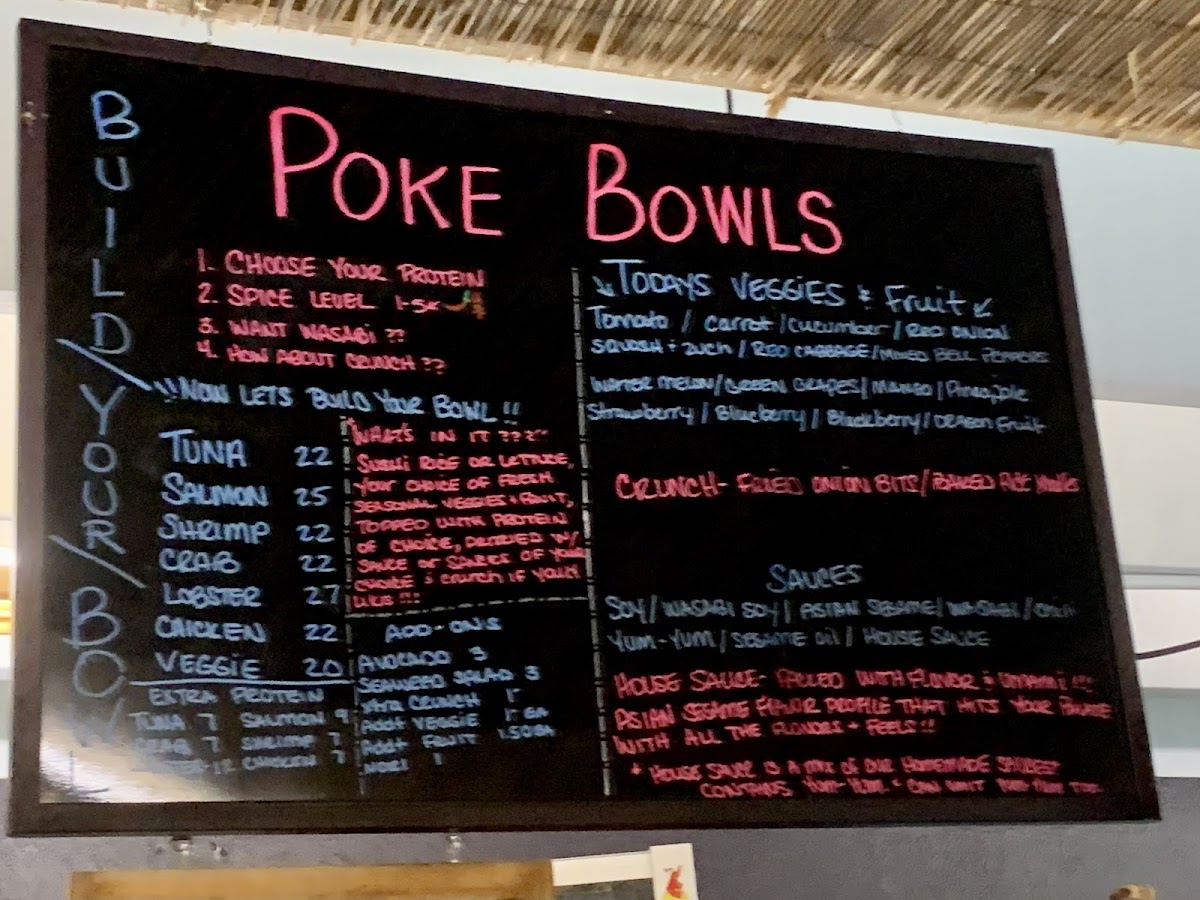 BUILD/YOUR/BOWL
POKE BOWLS
1. CHOOSE YOUR PROTEIN
2. SPICE LEVEL 1-5
3. WANT WASABI ??
4. HOW ABOUT CRUNCH ??
!!NOW LETS BUILD YOUR BOWL !!
TUNA 22
SALMON 25
SHRIMP 22
CRAB 22
LOBSTER 27
CHICKEN 22
VEGGIE 20
EXTRA PROTEIN
TUNA 7 SALMON 9
CRAB 7 SHRIMP 7
12 CHICKEN 7
WHAT'S IN IT ????
SUSHI RICE OR LETTUCE,
YOUR CHOICE OF FRESH
SEASONAL VEGGIES + FRUIT,
TOPPED WITH PROTEIN
OF CHOICE, W/
SAUCE OR SAUCES OF YOUR
CHOICE & CRUNCH IF YOU'D
LIKE !!!
ADD-ONS
AVOCADO 3
SEAWEED SALAD 3
XTRA CRUNCH 1
ADD+ VEGGIE 1 EA
ADD+ FRUIT 1.50 EA
NORI 1
TODAYS VEGGIES & Fruit
Tomato / Carrot / Cucumber / RED ONION
SQUASH + ZUCH / RED CABBAGE / MIXED BELL PEPPERS
WATER MELON / GREEN GRAPES / MANGO / Pineapple
Strawberry / Blueberry / Blackberry / DRAGON Fruit
CRUNCH- FRIED ONION BITS / BAKED RICE
SAUCES
SOY / WASABI SOY / ASIAN SESAME / WASABI /
YUM-YUM / SESAME Oil / HOUSE SAUCE
HOUSE SAUCE- FILLED WITH FLAVOR & UMAMI !!!
ASIAN SESAME FLAVOR PROFILE THAT HITS YOUR PALATE
WITH ALL THE FLAVORS + FEELS!!
* HOUSE SAUCE IS A MIX OF OUR HOMEMADE SAUCES
CONTAINS YUM-YUM * CAN OMIT YUM-YUM